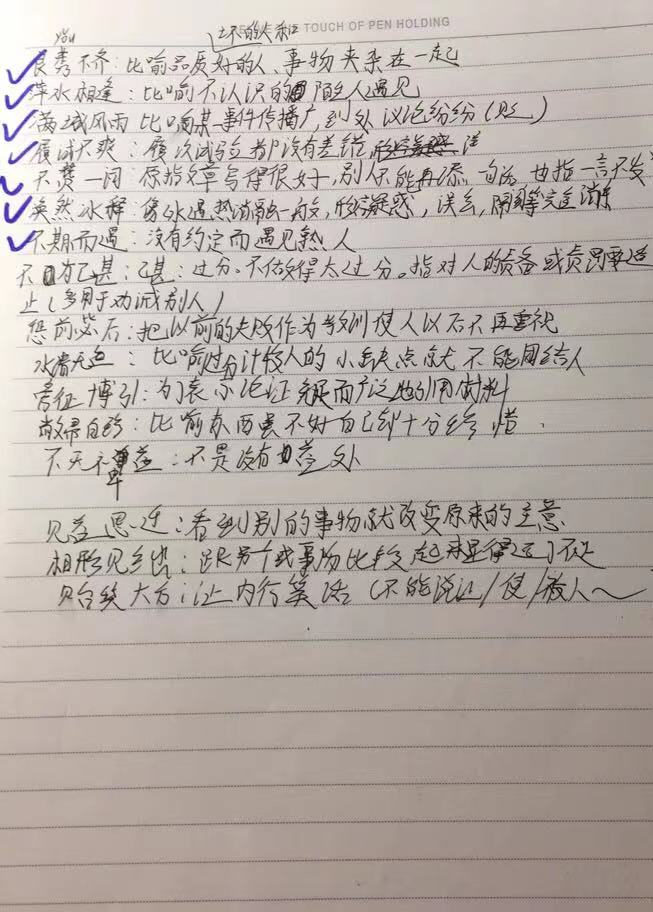 TOUCH OF PEN HOLDING
you 坏的人和
良莠不齐：比喻品质好的人、事物夹杂在一起
萍水相逢：比喻不认识的陌人遇见
满城风雨 比喻某一事件传播广，到处议论纷纷（贬）
屡试不爽：屡次试验都没有差错
不赞一词 原指文章写得很好，别人不能再添一句话 也指一言不发
涣然冰释 像冰遇热消融一般，形容疑惑，误会，隔阂等完全消除
不期而遇：没有约定而遇见熟人
不为已甚：已甚：过分。不做得太过分。指对人的责备或责罚要适
止（多用于劝诫别人）
惩前毖后：把以前的失败作为教训 使人以后不再重视
水清无鱼：比喻过分计较人的小缺点就不能团结人
旁征博引：为了表示论证充足而广泛地引用材料
敝帚自珍：比喻东西虽不好自己却十分珍惜．
不无裨益：不是没有益处
见异思迁：看到别的事物就改变原来的主意
相形见绌：跟另个或事物比较起来显得远了不足
贻笑大方：让内行笑话（不能说让/使/被人～